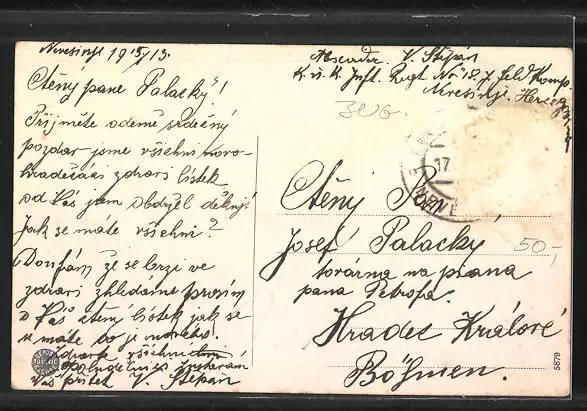 Neresinje 19 15/5 13.
Ctěný pane Palacký!
Přijměte odemě srdečný
pozdar jsme všichni novo-
hradečáci zdraví lístek
od Vás jsem obdržel děkuji
Jak se máte všichni?
Doufám že se brzi ve
zdraví zhledáme prosím
o Váš ctěný lístek jak se
máte co je nového.
Zdravte všechni
V. Štěpán
Absender. V. Štěpán
K. u. K. Inft. Regt. Nr. 18. 7. Feld Komp.
Neresinje. Hercegovina
346.
17
Ctěný Pán
Josef Palacký
50,-
továrna na piana
pana Petrofa.
Hradec Králové
Böhmen.
5879